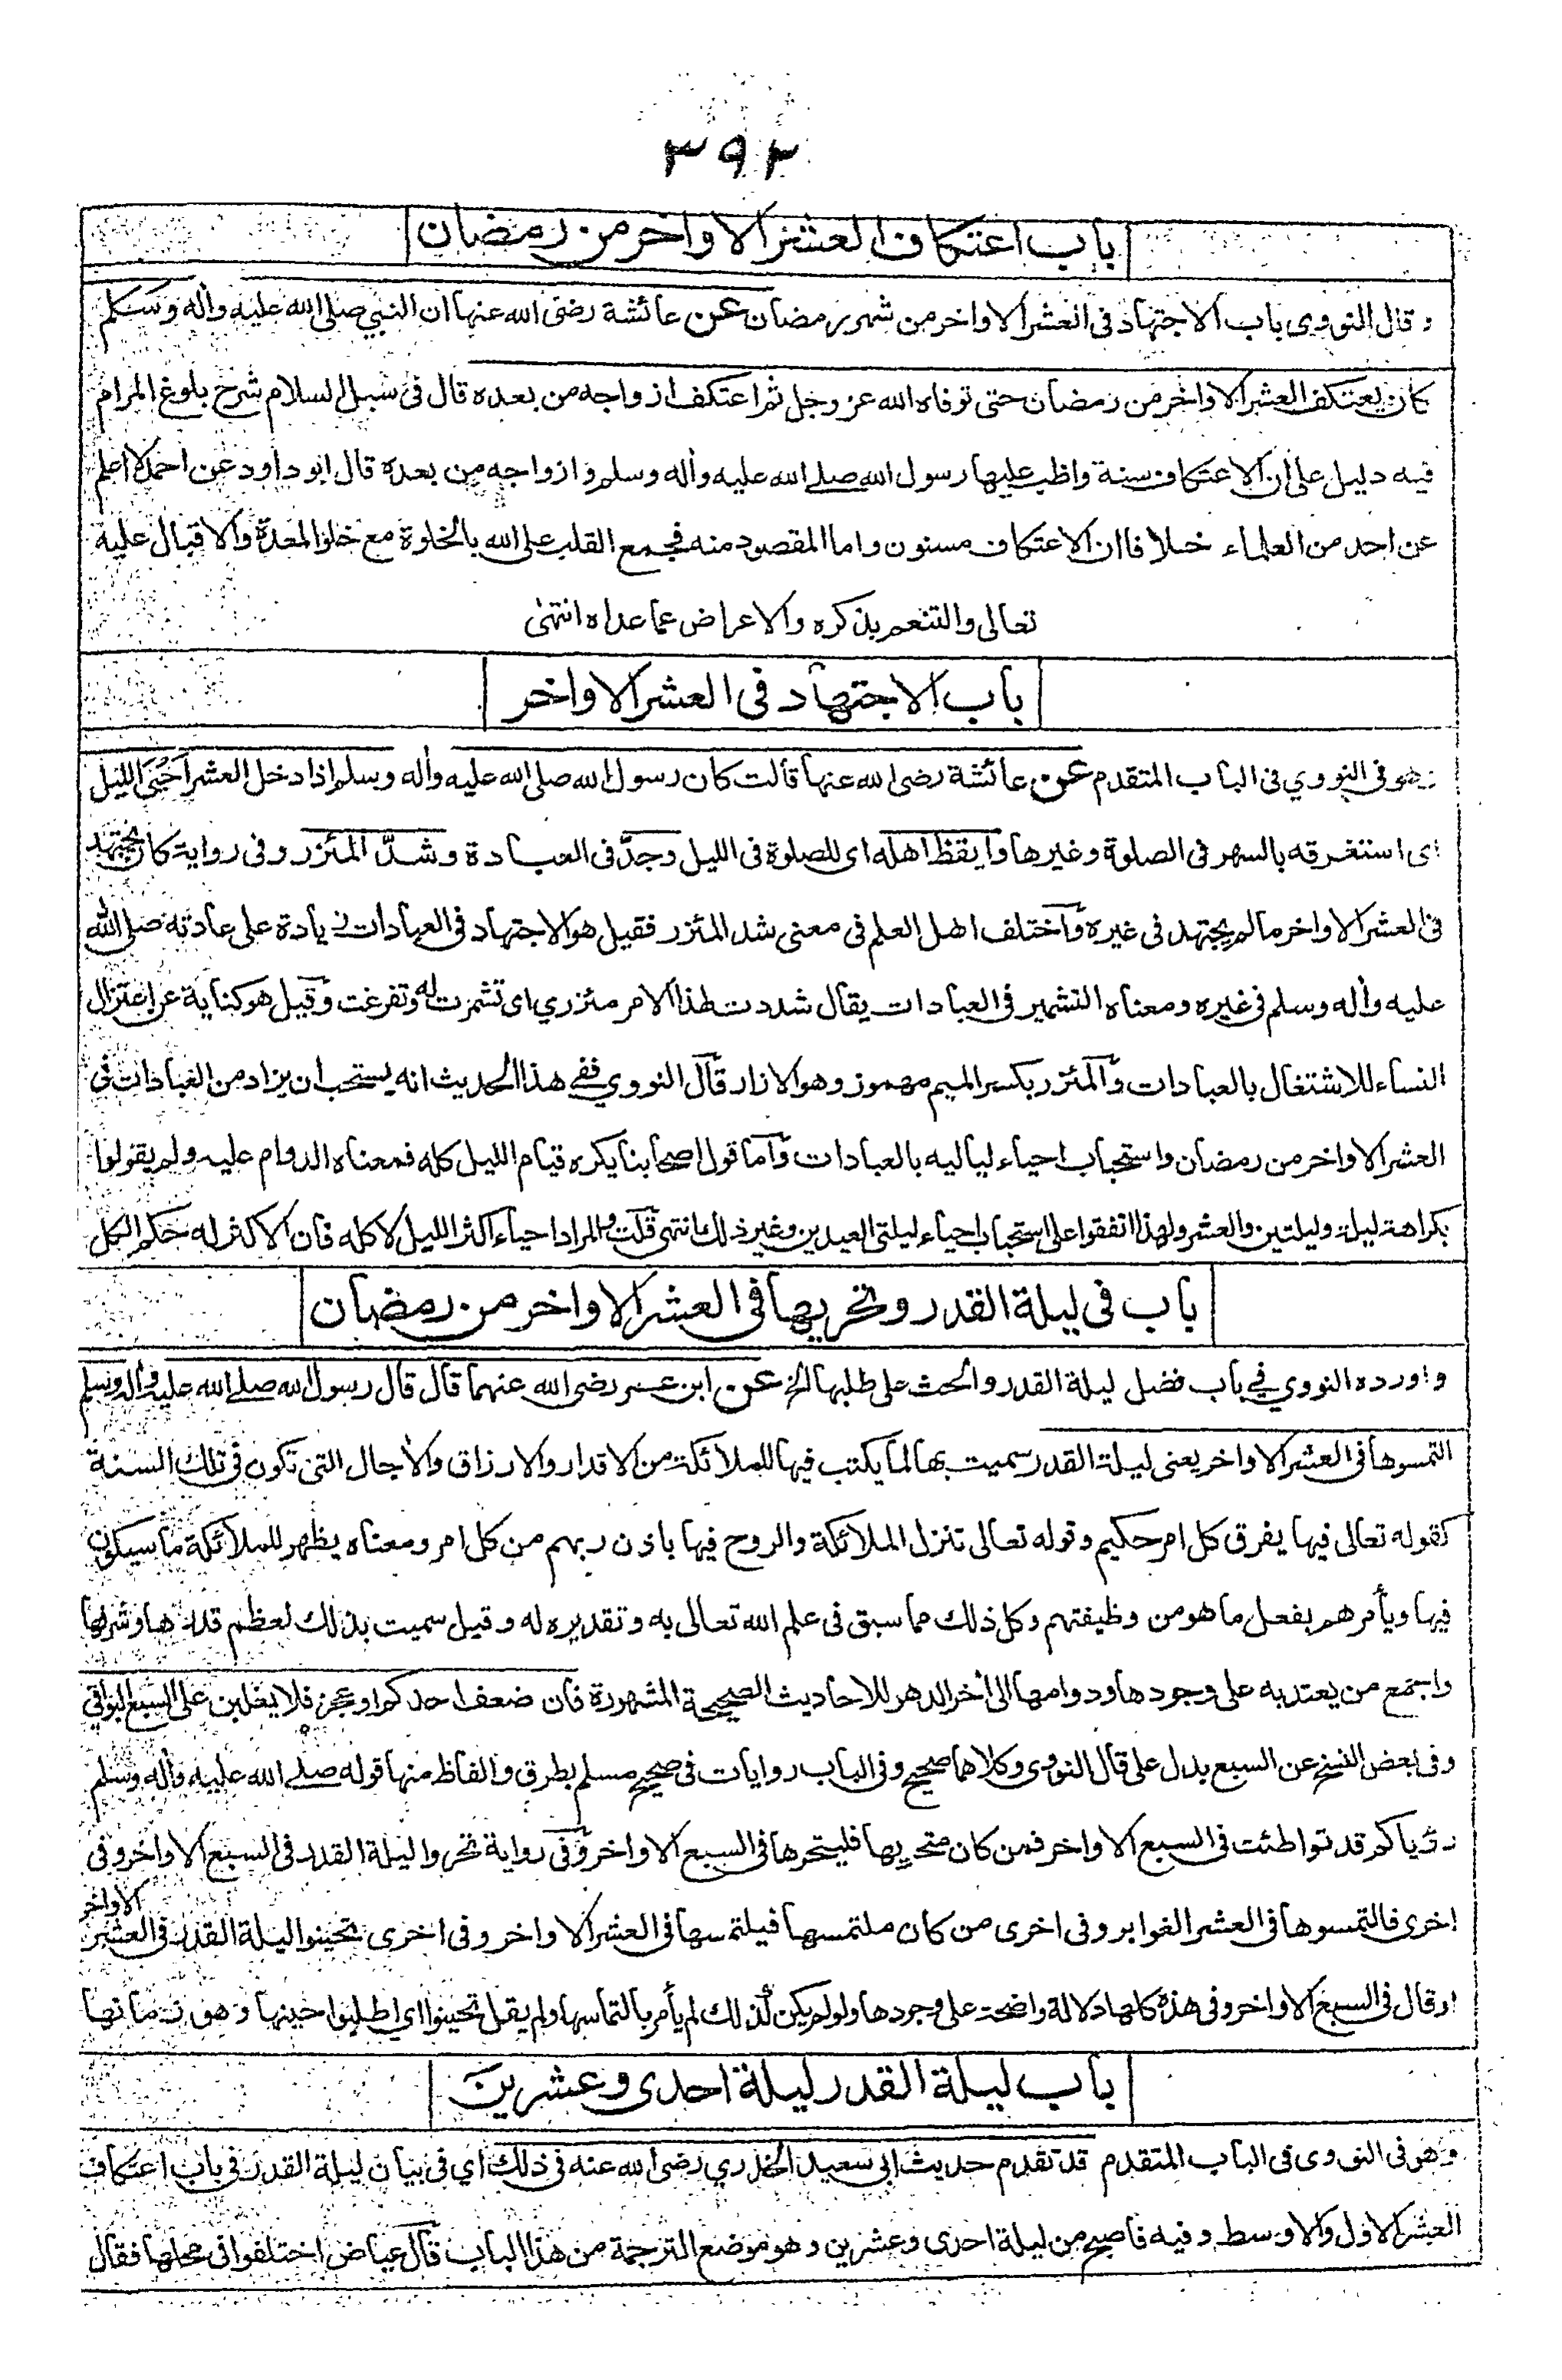 ٣٩٢
باب اعتكاف العشر الاواخر من رمضان
وقال النووى باب الاجتهاد فى العشر الاواخر من شهر رمضان عن عائشة رضى الله عنها ان النبي صلى الله عليه واٰله وسلم
كان يعتكف العشر الاواخر من رمضان حتى توفاه الله عز وجل ثم اعتكف ازواجه من بعده قال فى سبل السلام شرح بلوغ المرام
فيه دليل على ان الاعتكاف سنة واظب عليها رسول الله صلے الله عليه واٰله وسلم وازواجه من بعده قال ابو داود عن احمد لا اعلم
عن احد من العلماء خلافا ان الاعتكاف مسنون واما المقصود منه فجمع القلب على الله بالخلوة مع خلو المعدة والاقبال عليه
تعالى والتنعم بذكره والاعراض عما عداه انتهى
باب الاجتهاد فى العشر الاواخر
وهو فى النووي فى الباب المتقدم عن عائشة رضى الله عنها قالت كان رسول الله صلى الله عليه واٰله وسلم اذا دخل العشر أحيى الليل
اى استغرقه بالسهر فى الصلوة وغيرها وايقظ اهله اى للصلوة فى الليل وجدّ فى العبادة وشدّ المئزر وفى رواية كان يجتهد
فى العشر الاواخر ما لم يجتهد فى غيره واختلف اهل العلم فى معنى شد المئزر فقيل هو الاجتهاد فى العبادات زيادة على عادته صلى الله
عليه واٰله وسلم فى غيره ومعناه التشمير فى العبادات يقال شددت لهذا الامر مئزري اى تشمرت له وتفرغت وقيل هو كناية عن اعتزال
النساء للاشتغال بالعبادات والمئزر بكسر الميم مهموز وهو الازار قال النووي ففى هذا الحديث انه يستحب ان يزاد من العبادات فى
العشر الاواخر من رمضان واستحباب احياء لياليه بالعبادات واما قول اصحابنا يكره قيام الليل كله فمعناه الدوام عليه ولم يقولوا
بكراهة ليلة وليلتين والعشر ولهذا اتفقوا على استحباب احياء ليلتى العيدين وغير ذلك انتهى قلت والمراد احياء اكثر الليل لا كله فان الاكثر له حكم الكل
باب فى ليلة القدر وتحريها فى العشر الاواخر من رمضان
واورده النووي فى باب فضل ليلة القدر والحث على طلبها الخ عن ابن عمر رضى الله عنهما قال قال رسول الله صلے الله عليه واٰله وسلم
التمسوها فى العشر الاواخر يعنى ليلة القدر سميت بها لما يكتب فيها للملائكة من الاقدار والارزاق والاٰجال التى تكون فى تلك السنة
كقوله تعالى فيها يفرق كل امر حكيم وقوله تعالى تنزل الملائكة والروح فيها باذن ربهم من كل امر ومعناه يظهر للملائكة ما سيكون
فيها ويأمرهم بفعل ما هو من وظيفتهم وكل ذلك مما سبق فى علم الله تعالى به وتقديره له وقيل سميت بذلك لعظم قدرها وشرفها
واجمع من يعتد به على وجودها ودوامها الى اٰخر الدهر للاحاديث الصحيحة المشهورة فان ضعف احدكم او عجز فلا يغلبن على السبع البواقي
وفى بعض النسخ عن السبع بدل على قال النووى وكلاهما صحيح وفى الباب روايات فى صحيح مسلم بطرق والفاظ منها قوله صلے الله عليه واٰله وسلم
رؤياكم قد تواطئت فى السبع الاواخر فمن كان متحريها فليتحرها فى السبع الاواخر وفى رواية تحروا ليلة القدر فى السبع الاواخر وفى
اخرى فالتمسوها فى العشر الغوابر وفى اخرى من كان ملتمسها فيلتمسها فى العشر الاواخر وفى اخرى تحينوا ليلة القدر فى العشر الاواخر
او قال فى السبع الاواخر وفى هذه كلها دلالة واضحة على وجودها ولو لم يكن لذلك لم يأمر بالتماسها ولم يقل تحينوا اى اطلبوا حينها وهو زمانها
باب ليلة القدر ليلة احدى وعشرين
وهو فى النووى فى الباب المتقدم قد تقدم حديث ابى سعيد الخدري رضى الله عنه فى ذلك اي فى بيان ليلة القدر فى باب اعتكاف
العشر الاول والاوسط وفيه فاصبح من ليلة احدى وعشرين وهو موضع الترجمة من هذا الباب قال عياض اختلفوا فى محلها فقال